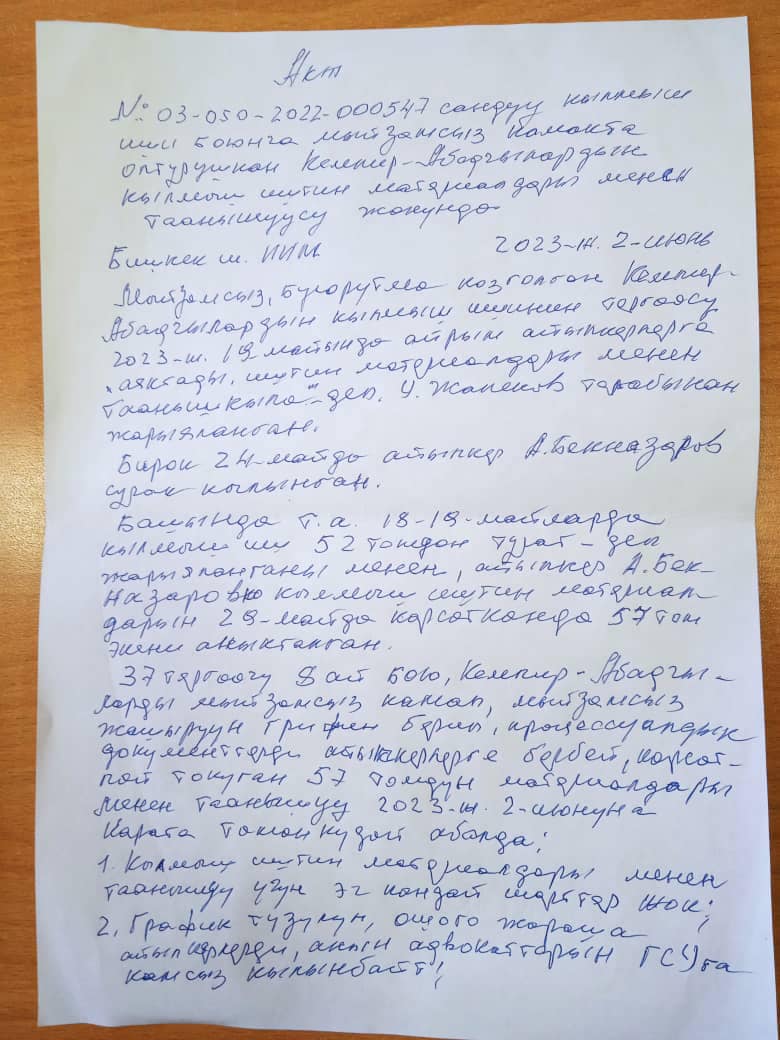 Акт
№: 03-050-2022-000547 сандуу кылмыш
иши боюнча мыйзамсыз камакта
олтурушкан Кемпир-Абадчылардын
кылмыш иштин материалдары менен
таанышуусу жөнүндө
Бишкек ш. ИИМ 2023-ж. 2-июнь
Мыйзамсыз, буюрутма козголгон Кемпир-
Абадчылардын кылмыш ишинин тергөөсү
2023-ж. 19 майында айрым айыпкерлерге
"аяктады, иштин материалдары менен
тааныш кыла" - деп, Ч. Жапеков тарабынан
жарыяланган.
Бирок 24-майда айыпкер А.Бекназаров
сурак кылынган.
Башында т.а. 18-19-майларда
кылмыш иш 52 томдон турат - деп
жарыяланганы менен, айыпкер А.Бек-
назаровко кылмыш иштин материал-
дарын 29-майда көрсөткөндө 57 том
экени аныкталган.
37 тергөөчү 8 ай бою, Кемпир-Абадчы-
ларды мыйзамсыз камап, мыйзамсыз
жашыруун гриф мен бериш, процессуалдык
документтерди айыпкерлерге бербей, көрсөт-
пөй токуган 57 томдун материалдары
менен таанышуу 2023-ж. 2-июнуна
карата төмөнкүдөй абалда;
1. Кылмыш иштин материалдары менен
таанышуу үчүн эч кандай шарттар жок;
2. График түзүлүп, ошого жараша
айыпкерлерди, анын адвокаттарын ГСУга
камсыз кылынбайт!